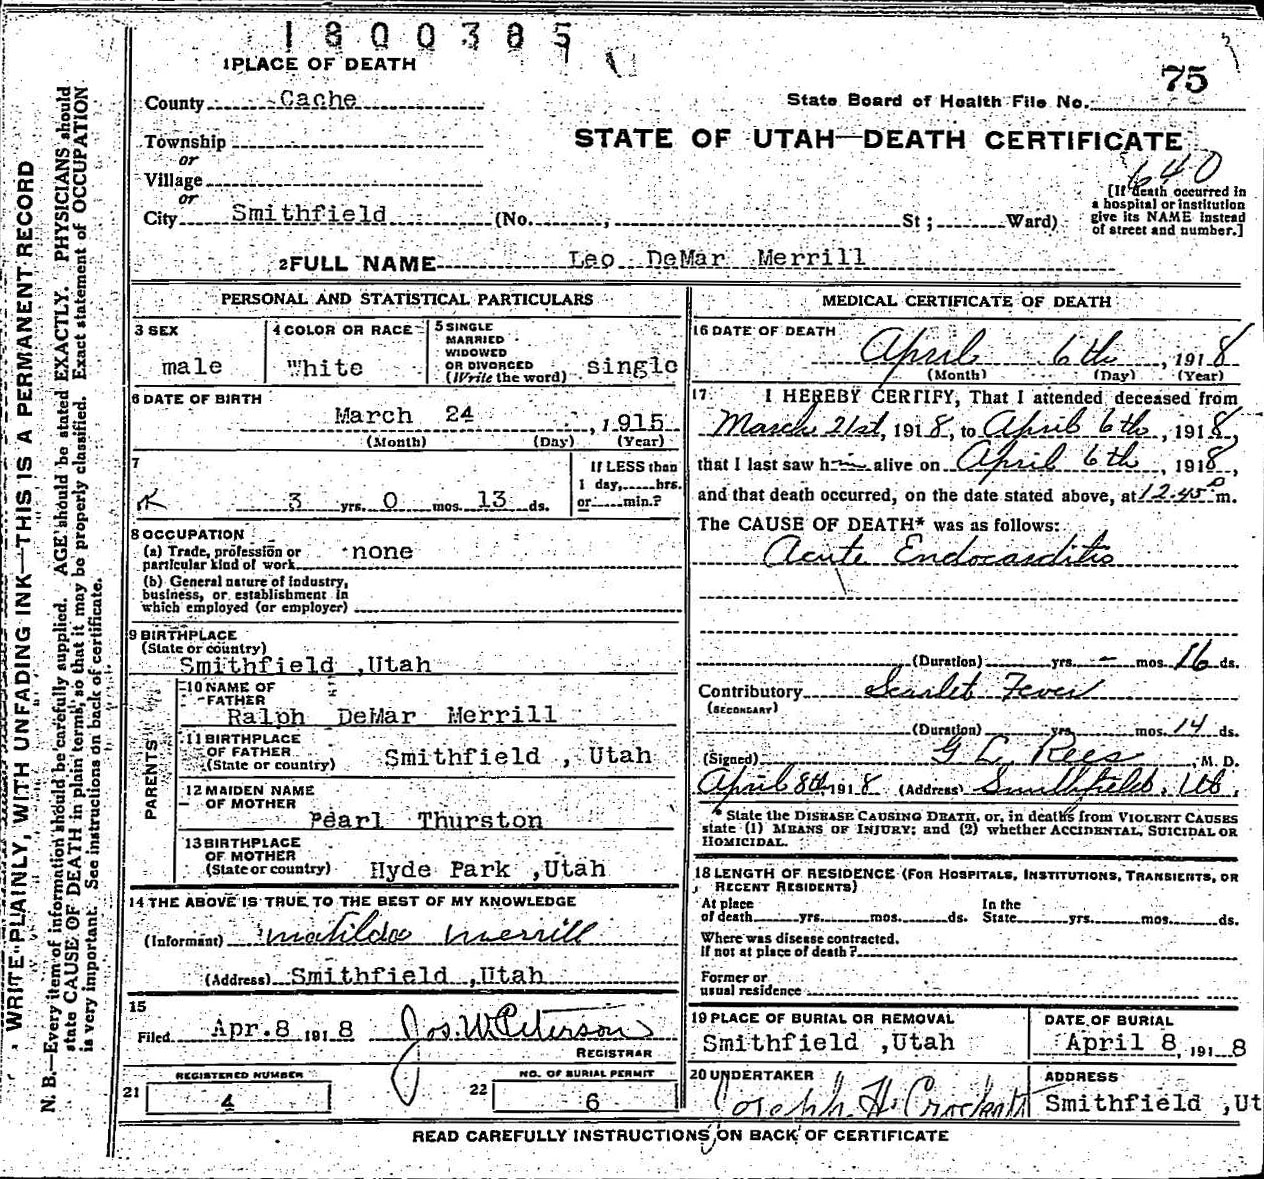 1800385
1 PLACE OF DEATH
75
County Cache
State Board of Health File No.
Township
STATE OF UTAH—DEATH CERTIFICATE
or
Village
640
or
[If death occurred in
a hospital or institution
give its NAME instead
of street and number.]
City Smithfield (No. , St ; Ward)
2 FULL NAME Leo DeMar Merrill
PERSONAL AND STATISTICAL PARTICULARS
3 SEX
male
4 COLOR OR RACE
White
5 SINGLE
MARRIED
WIDOWED
OR DIVORCED
(Write the word) single
6 DATE OF BIRTH
March 24 , 1915
(Month) (Day) (Year)
7
3 yrs. 0 mos. 13 ds.
If LESS than
1 day, hrs.
or min.?
8 OCCUPATION
(a) Trade, profession or
particular kind of work none
(b) General nature of industry,
business, or establishment in
which employed (or employer)
9 BIRTHPLACE
(State or country)
Smithfield ,Utah
PARENTS
10 NAME OF
FATHER
Ralph DeMar Merrill
11 BIRTHPLACE
OF FATHER
(State or country) Smithfield , Utah
12 MAIDEN NAME
OF MOTHER
Pearl Thurston
13 BIRTHPLACE
OF MOTHER
(State or country) Hyde Park ,Utah
14 THE ABOVE IS TRUE TO THE BEST OF MY KNOWLEDGE
(Informant) Matilda Merrill
(Address) Smithfield ,Utah
15
Filed Apr.8 1918 Jos. W. Peterson
REGISTRAR
21 REGISTERED NUMBER
4
22 NO. OF BURIAL PERMIT
6
MEDICAL CERTIFICATE OF DEATH
16 DATE OF DEATH
April 6th , 1918
(Month) (Day) (Year)
17 I HEREBY CERTIFY, That I attended deceased from
March 21st, 1918, to April 6th, 1918,
that I last saw h alive on April 6th, 1918,
and that death occurred, on the date stated above, at 12.45 P m.
The CAUSE OF DEATH* was as follows:
Acute Endocarditis
(Duration) yrs. – mos. 16 ds.
Contributory Scarlet Fever
(SECONDARY)
(Duration) yrs. mos. 14 ds.
(Signed) G L Rees , M. D.
April 8th, 1918 (Address) Smithfield, Ut.
* State the DISEASE CAUSING DEATH, or, in deaths from VIOLENT CAUSES
state (1) MEANS OF INJURY; and (2) whether ACCIDENTAL, SUICIDAL OR
HOMICIDAL.
18 LENGTH OF RESIDENCE (FOR HOSPITALS, INSTITUTIONS, TRANSIENTS, OR
RECENT RESIDENTS)
At place In the
of death yrs. mos. ds. State yrs. mos. ds.
Where was disease contracted.
If not at place of death?
Former or
usual residence
19 PLACE OF BURIAL OR REMOVAL
Smithfield ,Utah
DATE OF BURIAL
April 8 , 1918
20 UNDERTAKER
Joseph H. Crockett
ADDRESS
Smithfield ,Ut
READ CAREFULLY INSTRUCTIONS ON BACK OF CERTIFICATE
WRITE PLAINLY, WITH UNFADING INK—THIS IS A PERMANENT RECORD
N. B.—Every item of information should be carefully supplied. AGE should be stated EXACTLY. PHYSICIANS should
state CAUSE OF DEATH in plain terms, so that it may be properly classified. Exact statement of OCCUPATION
is very important. See instructions on back of certificate.